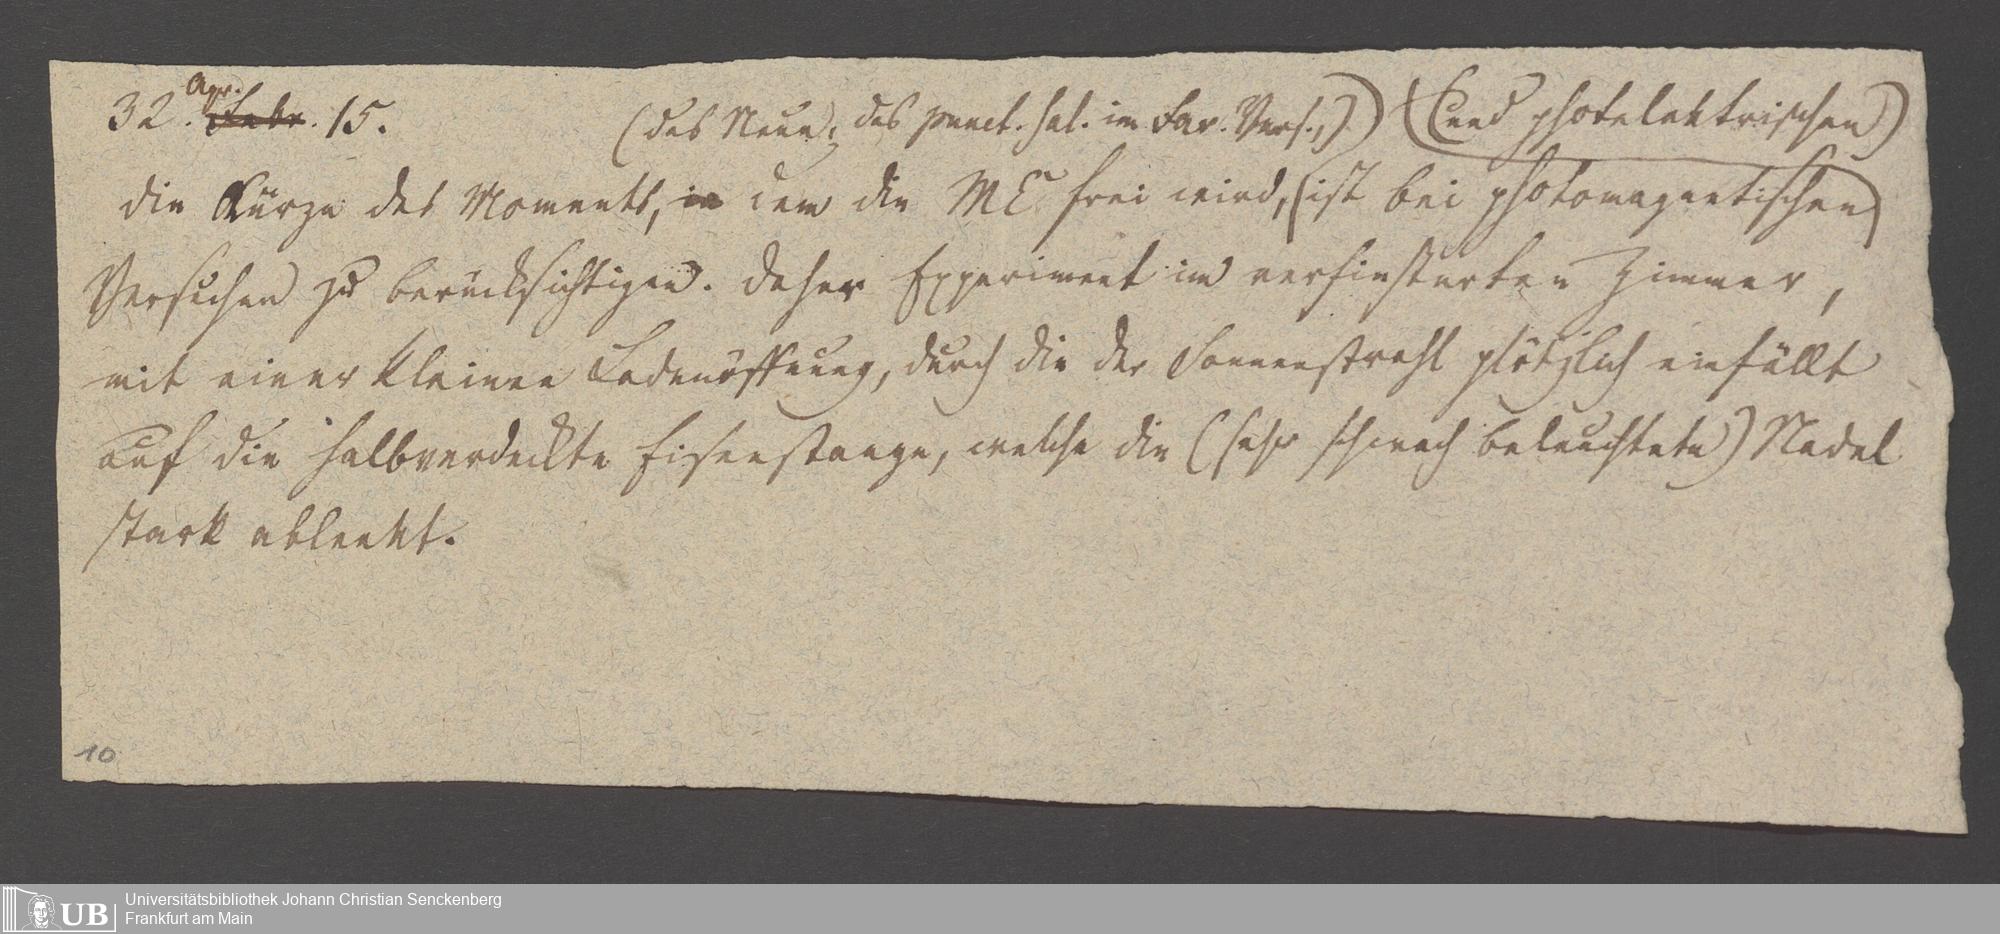 Apr.
32. Febr. 15. (das Neue, das punct. sal. im Far. Vers.,) (und photelektrischen)
die Kürze des Moments, in dem die ME frei wird, (ist bei photomagnetischen)
Versuchen zu berücksichtigen. daher Experiment im verfinsterten Zimmer,
mit einer kleinen Ladenöffnung, durch die der Sonnenstrahl plötzlich einfällt
auf die halbverdeckte Eisenstange, welche die (sehr schwach beleuchtete) Nadel
stark ablenkt.
10
UB
Universitätsbibliothek Johann Christian Senckenberg
Frankfurt am Main